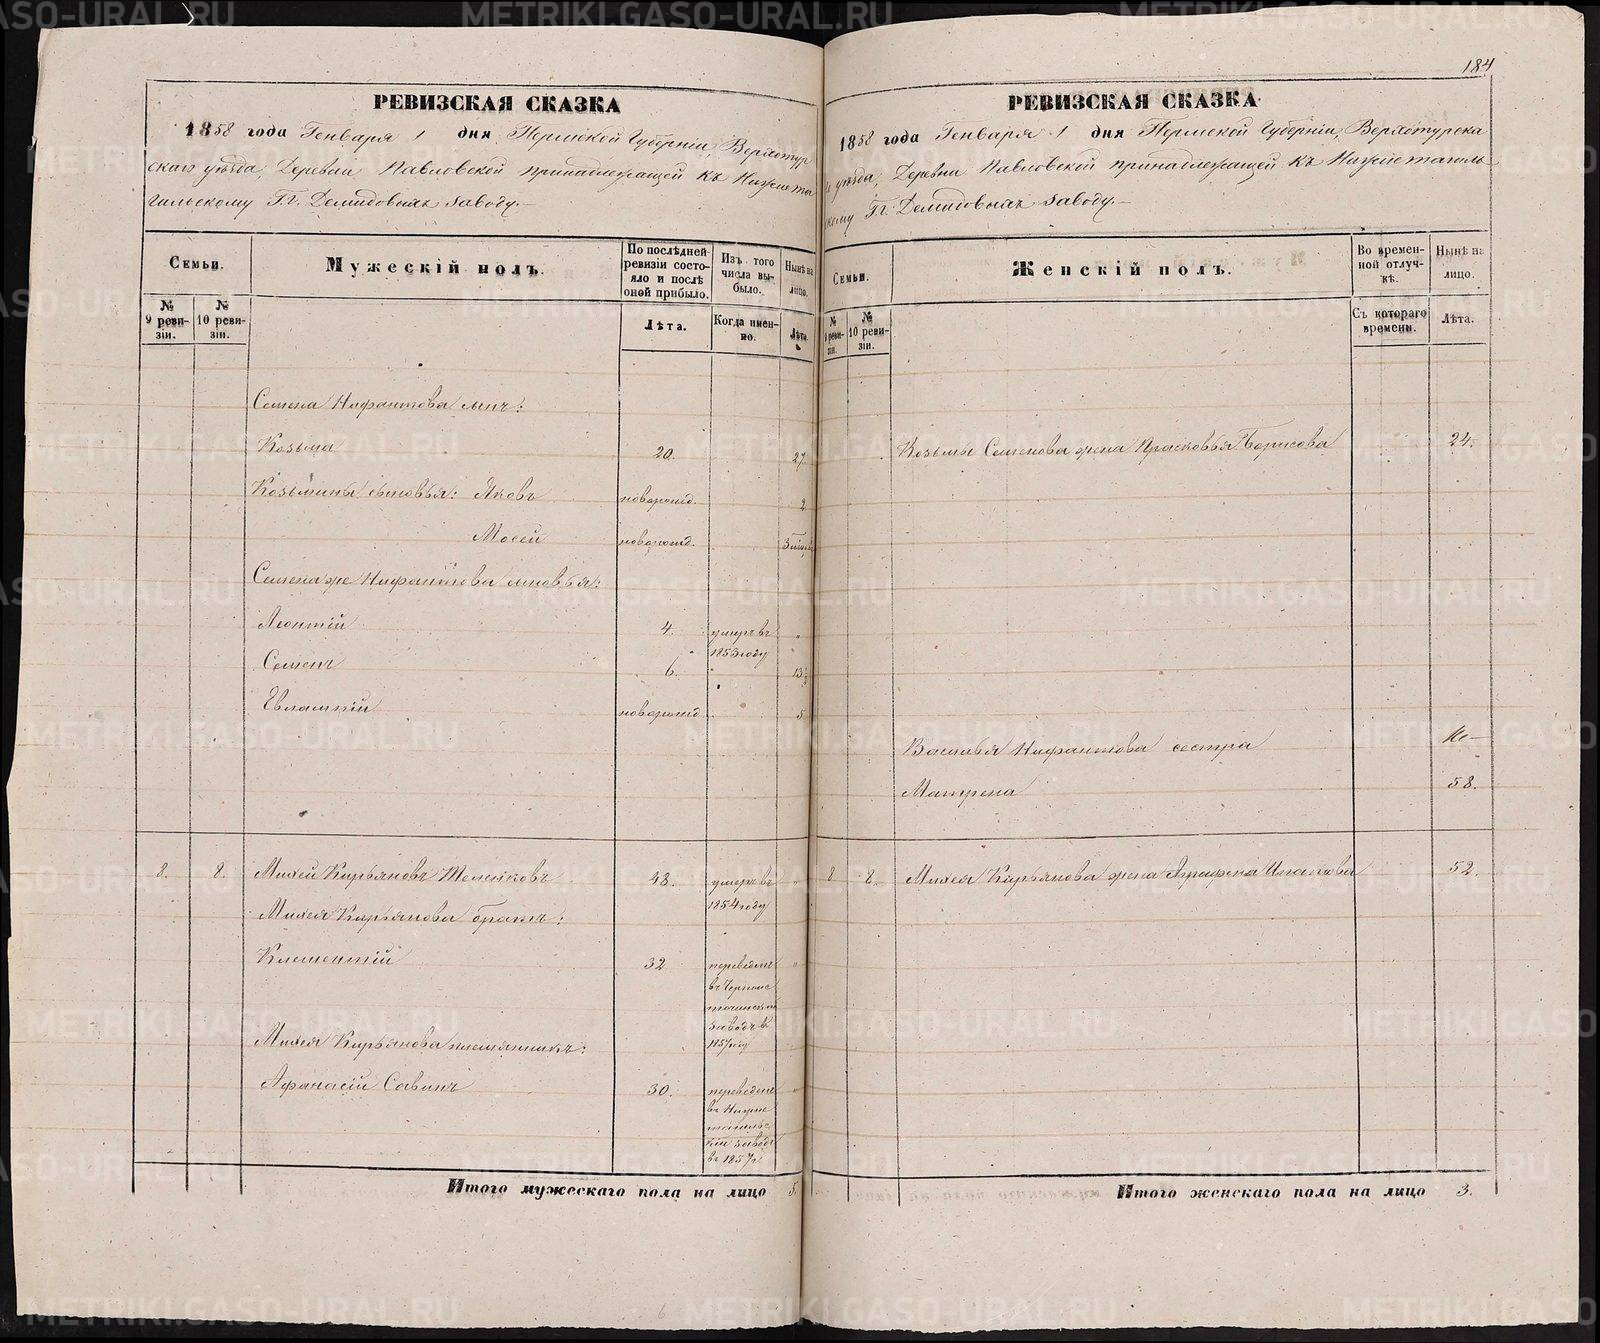 184
РЕВИЗСКАЯ СКАЗКА
1858 года Генваря 1 дня Пермской Губерніи, Верхотур
скаго уѣзда, Деревни Павловской принадлежащей къ Нижнета
гильскому Гг. Демидовыхъ заводу.—
Семьи.
Мужескій полъ.
По послѣдней ревизіи состо-
яло и послѣ оной прибыло.
Изъ того числа вы-
было.
Нынѣ на лицо.
№ 9 реви-
зіи.
№ 10 реви-
зіи.
Лѣта.
Когда имен-
но.
Лѣта.
Семена Нифантова сынъ:
Козьма 20. 27.
Козьмины сыновья: Яковъ новорожд. 2
Мосей новорожд. 3
Семена же Нифантова сыновья:
Леонтій 4. умеръ въ "
1853 году
Семенъ 6. " 13½
Евлампій новорожд. 5
8. 8. Михей Кирьяновъ 48. умеръ въ "
1854 году
Михея Кирьянова братъ:
Клементій 32 переведенъ "
въ Черноис
точинскій
заводъ въ
1857 году
Михея Кирьянова племянникъ:
Афанасій Савинъ 30. переведенъ "
въ Нижне
тагильс
кій заводъ
въ 1857 г
Итого мужескаго пола на лицо 5.
РЕВИЗСКАЯ СКАЗКА
1858 года Генваря 1 дня Пермской Губерніи, Верхотурска
уѣзда, Деревни Павловской принадлежащей къ Нижнетагиль-
скому Гг. Демидовыхъ заводу.—
Семьи.
Женскій полъ.
Во времен-
ной отлуч-
кѣ.
Нынѣ на лицо.
№ 9 реви-
зіи.
№ 10 реви-
зіи.
Съ котораго времени.
Лѣта.
Козьмы Семенова жена Прасковья Борисова 24.
Нифантова сестра
Матрена 58.
8 8. Михея Кирьянова жена Аграфена 52.
Итого женскаго пола на лицо 3.
METRIKI.GASO-URAL.RU